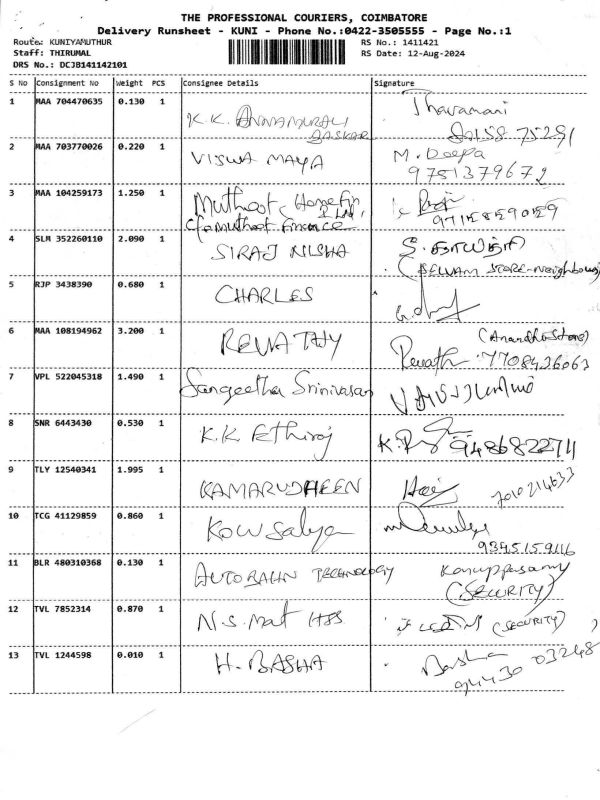 THE PROFESSIONAL COURIERS, COIMBATORE
Delivery Runsheet - KUNI - Phone No.:0422-3505555 - Page No.:1
Route: KUNIYAMUTHUR RS No.: 1411421
Staff: THIRUMAL RS Date: 12-Aug-2024
DRS No.: DCJB141142101
S No Consignment No Weight PCS Consignee Details Signature
1 MAA 704470635 0.130 1 K.K. BASKAR Thavamani
2 MAA 703770026 0.220 1 VISWA MAYA M. Deepa
9751379672
3 MAA 104259173 1.250 1 Muthoot Homefin
C/o muthoot Finance
4 SLM 352260110 2.090 1 SIRAJ NISHA
(SELVAM STORE-Neighbour)
5 RJP 3438390 0.680 1 CHARLES
6 MAA 108194962 3.200 1 REVATHY
Revathi 7708436063
7 VPL 522045318 1.490 1 Sangeetha Srinivasan
8 SNR 6443430 0.530 1 K.K Ethiroj 9486822711
9 TLY 12540341 1.995 1 KAMARUDHEEN 7010214633
10 TCG 41129859 0.860 1 Kowsalya
9345159116
11 BLR 480310368 0.130 1 TECHNOLOGY Karuppasamy
(SECURITY)
12 TVL 7852314 0.870 1 N.S. Mat HSS (SECURITY)
13 TVL 1244598 0.010 1 H. BASHA Basha
94430 03248